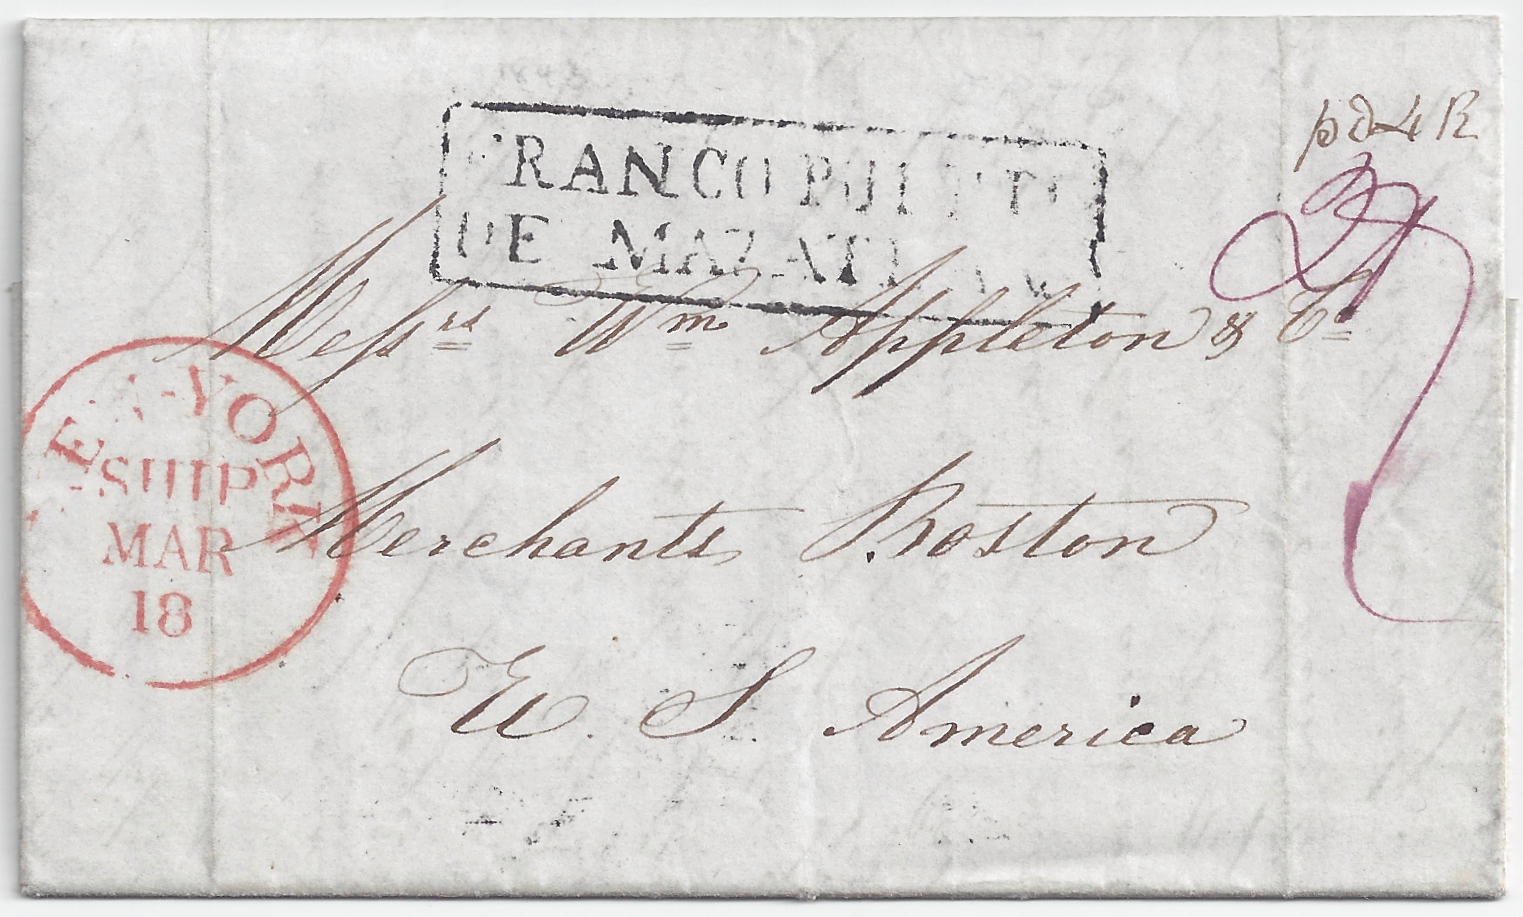 FRANCO PUERTO
DE MAZATLAN
pd 4 R
Messrs Wm Appleton & Co
NEW-YORK
SHIP
MAR
18
Merchants Boston
U. S. America